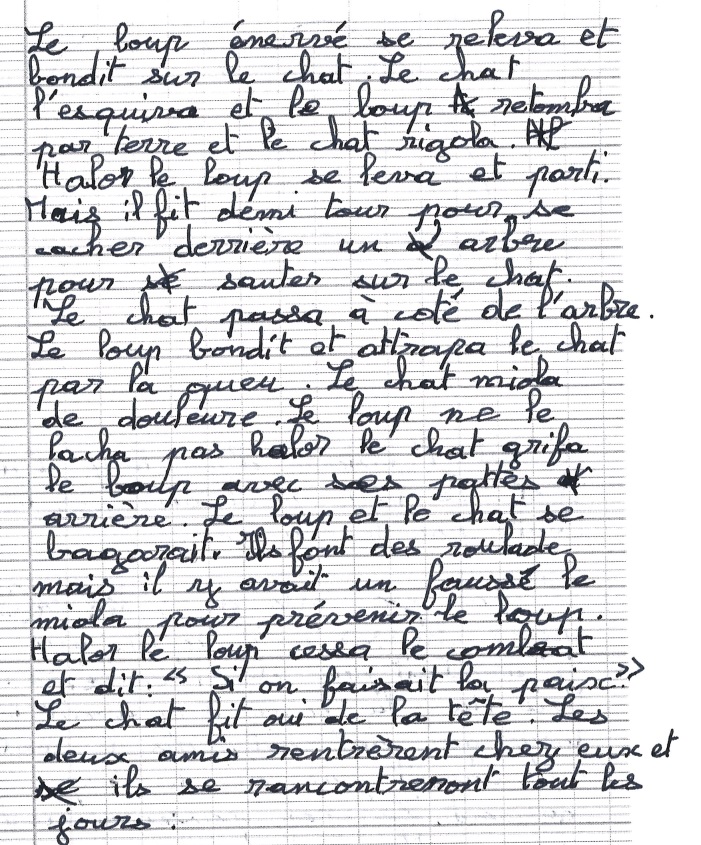 Le loup énervé se releva et
bondit sur le chat. Le chat
l'esquiva et le loup retomba
par terre et le chat rigola.
Halor le loup se leva et parti.
Mais il fit demi tour pour se
cacher derrière un arbre
pour sauter sur le chat.
Le chat passa à coté de l'arbre.
Le loup bondit et attrapa le chat
par la queu. Le chat miola
de douleure. Le loup ne le
lacha pas halor le chat grifa
le loup avec ses pattes
arrière. Le loup et le chat se
bagarait. Ils font des roulade
mais il y avait un faussé le
miola pour prévenir le loup.
Halor le loup cessa le combat
et dit : « Si on faisait la paix ? »
Le chat fit oui de la tête. Les
deux amis rentrèrent chez eux et
ils se rancontremont tout les
jours.